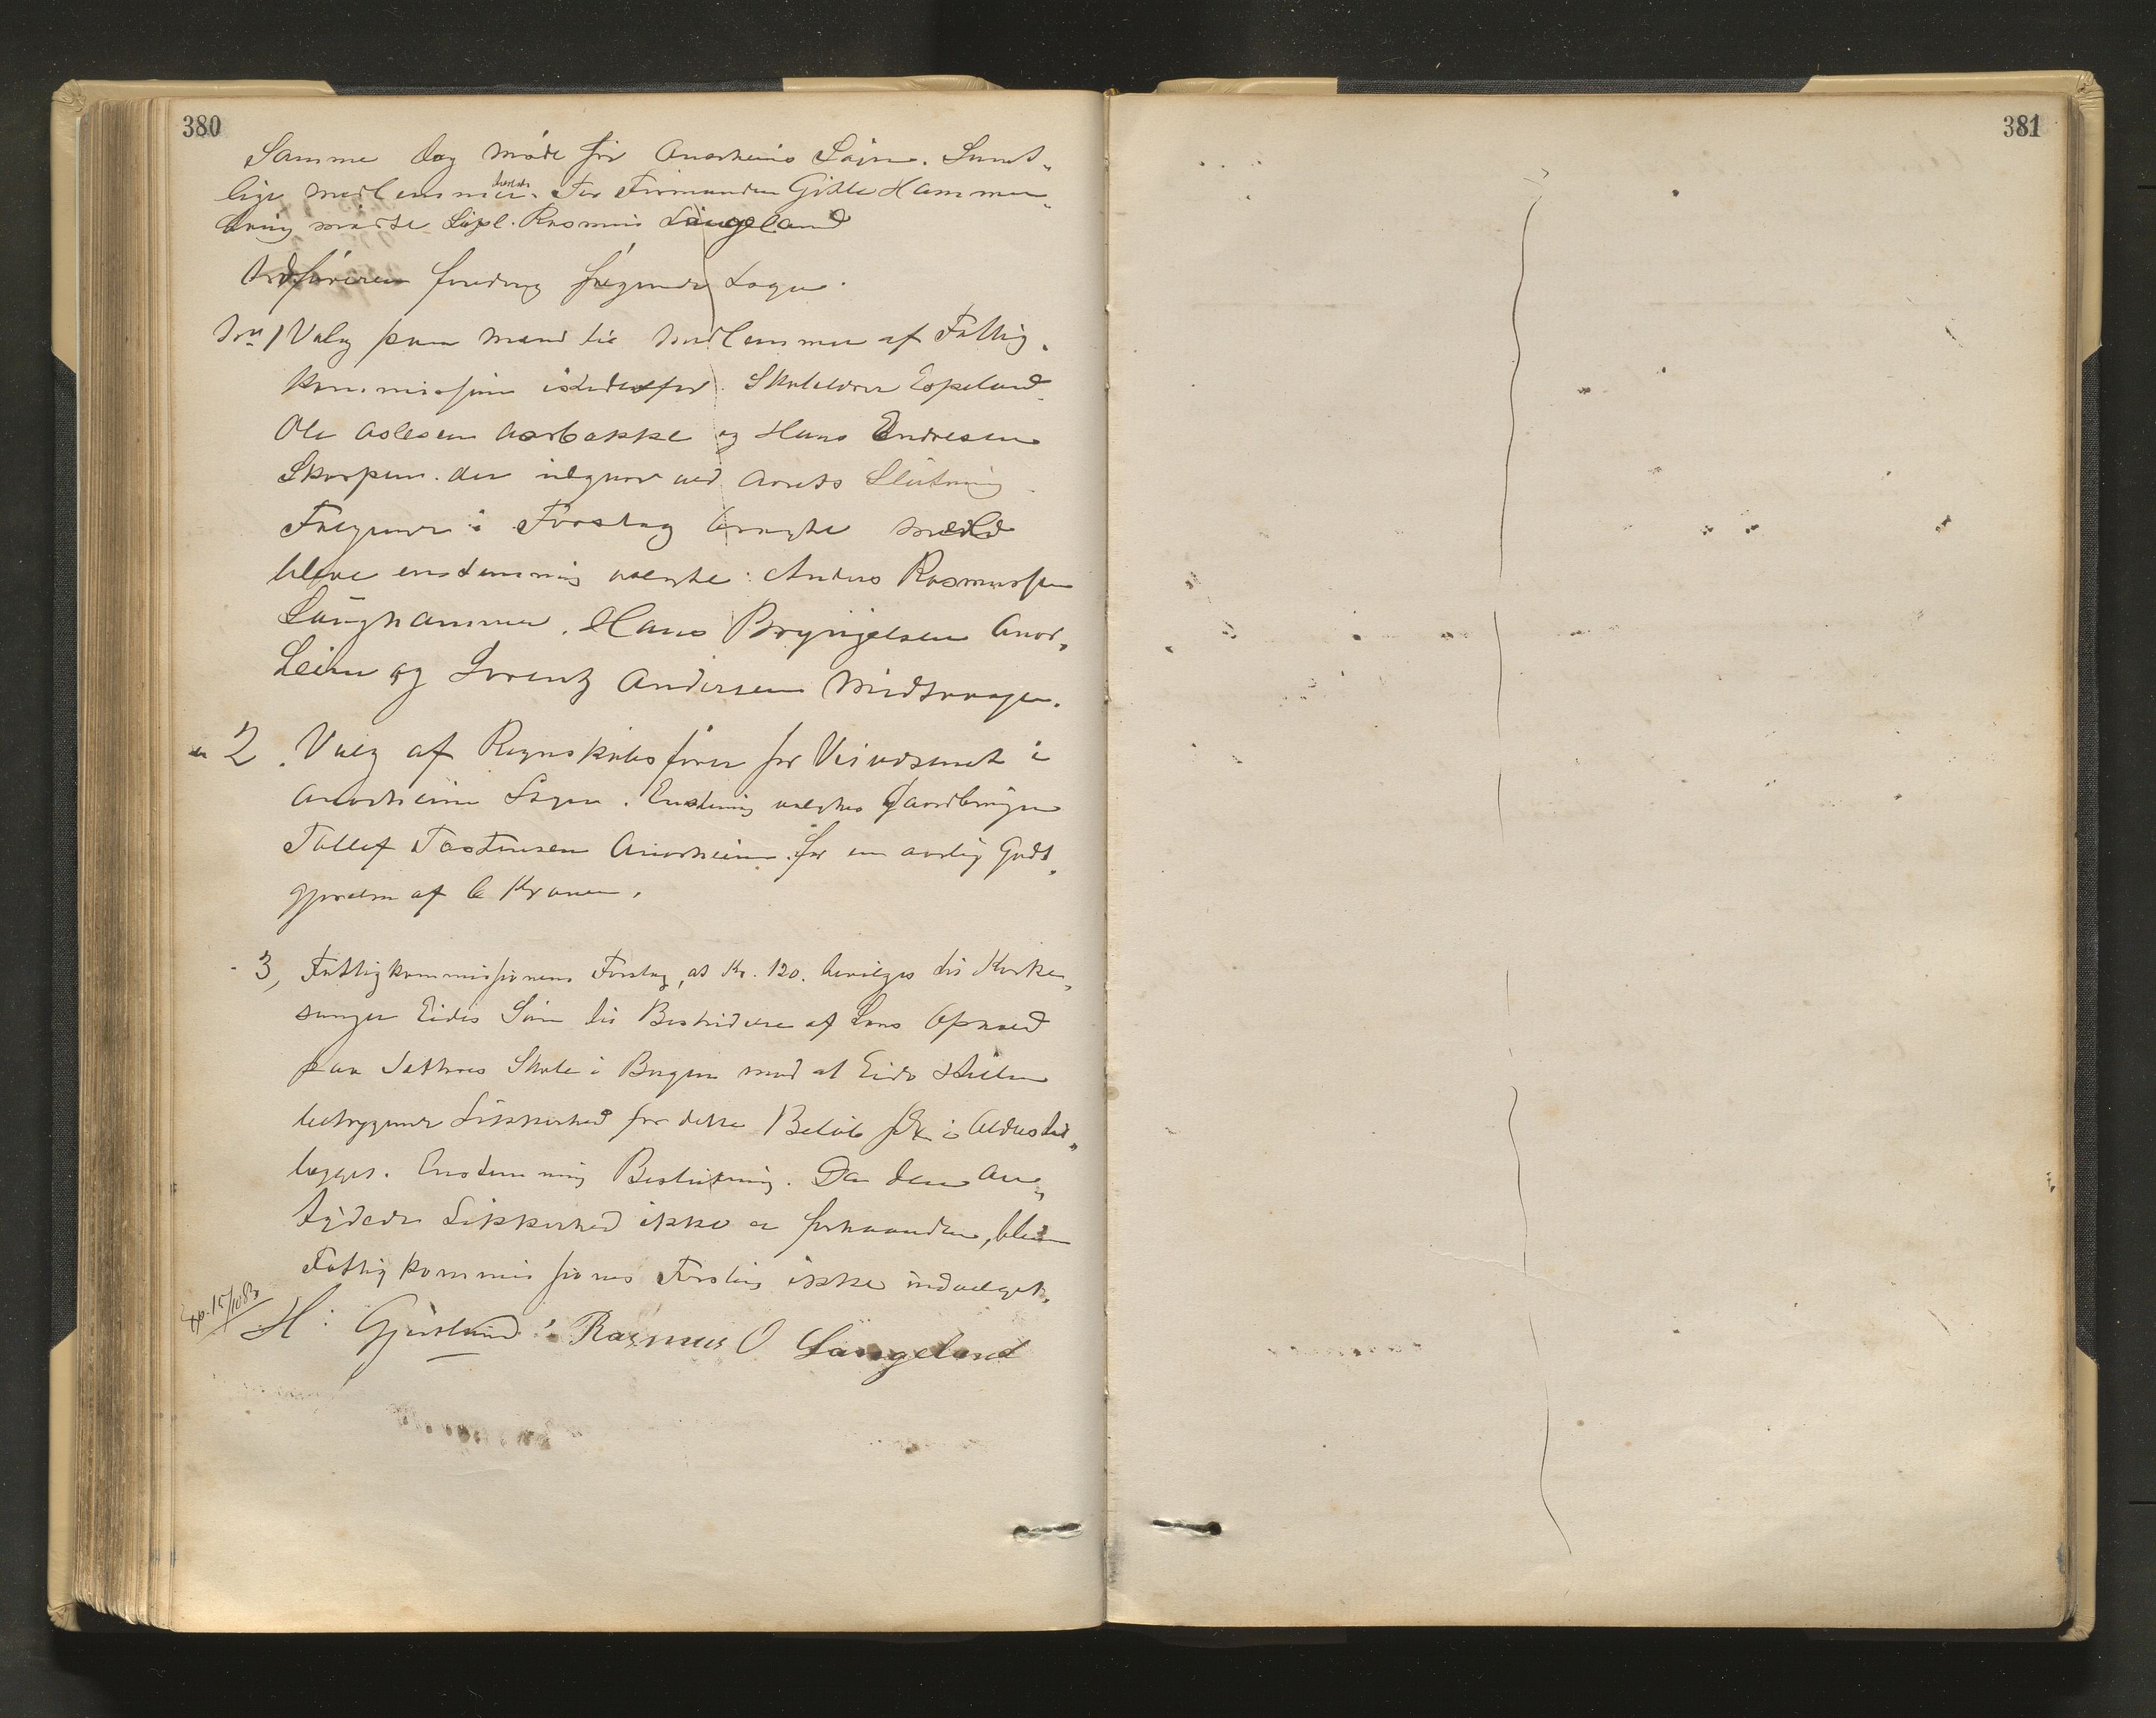 380
Samme Dag møde for Aaarheims Sogn. Samt-
lige medlemmer tilstede. For Formanden Gitle Hammer-
ø mødte Supl. Rasmus Langeland
Ordføreren foredrog følgende Sager.
No 1 Valg paa Mænd til Medlemmer af Fattig-
kommissionen istedetfor Skolelærer Espeland
Ole Aslesen og Hans Endresen
Skorpen der udgaar ved Aarets Slutning
Følgende i Forslag bragte Mænd
bleve enstemmig valgte: Anders Rasmussen
Langhammer. Hans Brynjelsen Aar-
heim og Lorentz Andersen Midtvaage.
" 2. Valg af Regnskabsfører for Veivæsenet i
Aarheim Sogn. Enstemmig valgtes Gaardbruger
Tollef Tostensen Aarheim for en aarlig Godt-
gjørelse af 6 Kroner.
" 3, Fattigkommissionens Forslag, at Kr. 120. bevilges til Kirke-
sanger Eides Søn til Bestridelse af hans Ophold
paa Døvstummes Skole i Bergen mod at Eide stiller
betryggende Sikkerhed for dette Beløb
. Enstemmig Beslutning. Da den an-
tydede Sikkerhed ikke er forhaanden, blev
Fattigkommissionens Forslag ikke indvilget.
Exp. 15/10 83
H: Gjertsund. Rasmus O Langeland
381